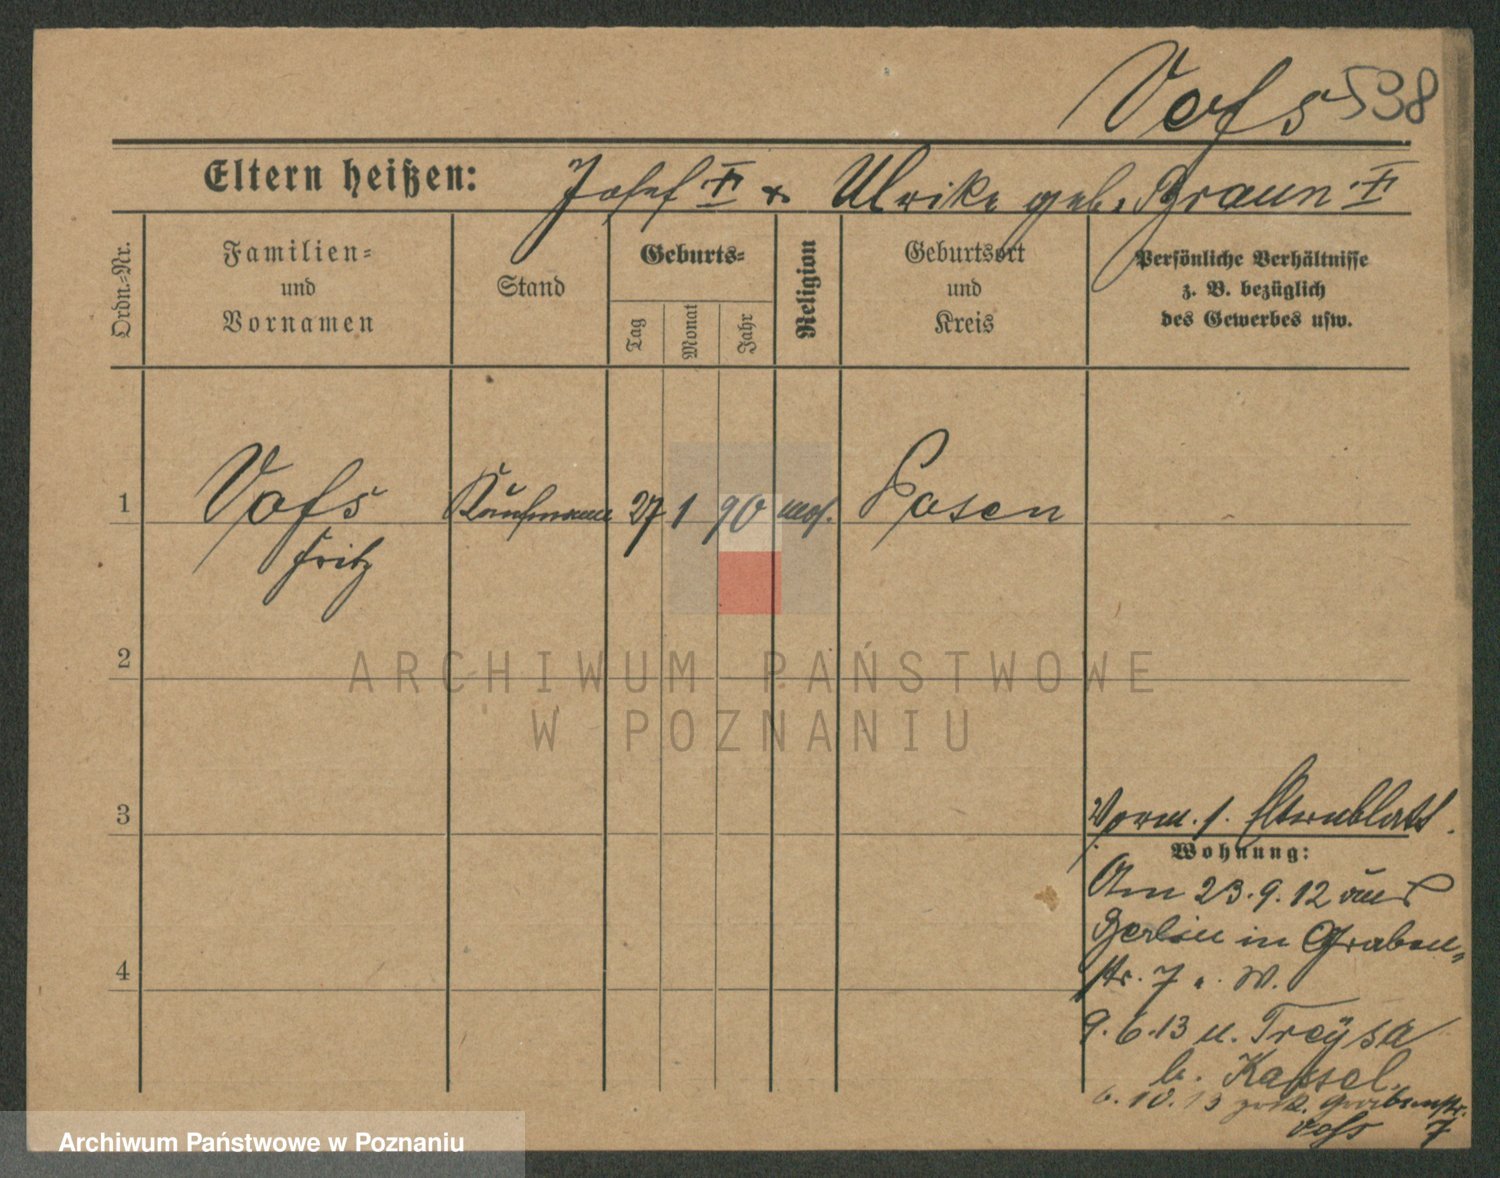 Voss 538
Eltern heißen: Josef † & Ulrike geb. Braun †
Ordn.-Nr.
Familien-
und
Vornamen
Stand
Geburts-
Tag
Monat
Jahr
Religion
Geburtsort
und
Kreis
Persönliche Verhältnisse
z. B. bezüglich
des Gewerbes usw.
1 Voss Kaufmann 27 1 90 mos. Posen
Fritz
2
ARCHIWUM PAŃSTWOWE
W POZNANIU
3
Vorm. s. Elternblatt.
Wohnung:
Am 23.9.12 aus
Berlin in Graben-
4
str. 7 W.
9.6.13 n. Treysa
b. Kassel.
6.10.13 zrk. Grabenstr.
Voss 7
Archiwum Państwowe w Poznaniu